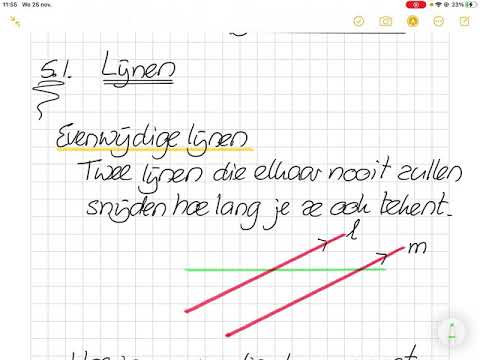 11:55 Wo 25 nov.
23%
5.1. Lijnen
Evenwijdige lijnen
Twee lijnen die elkaar nooit zullen
snijden hoe lang je ze ook tekent.
l
m